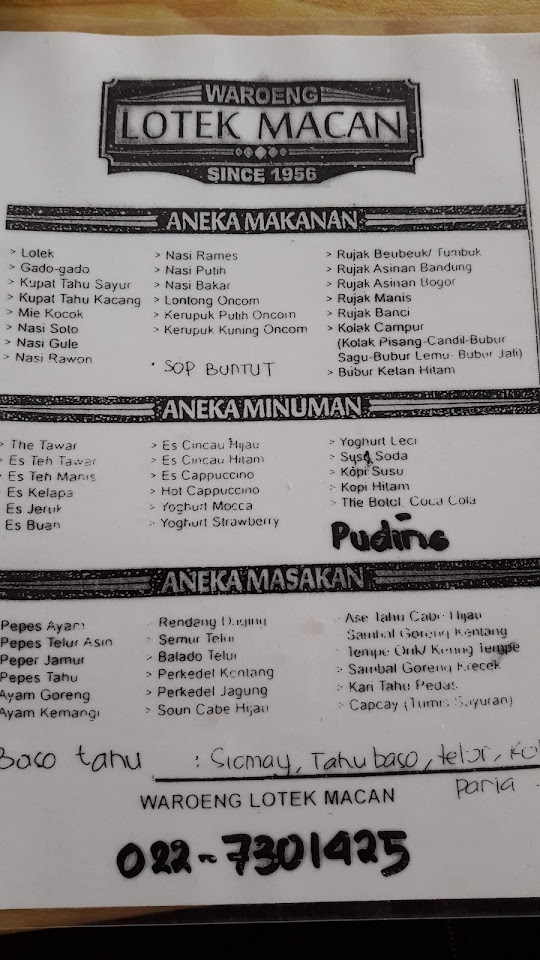 WAROENG
LOTEK MACAN
SINCE 1956
ANEKA MAKANAN
> Lotek
> Gado-gado
> Kupat Tahu Sayur
> Kupat Tahu Kacang
> Mie Kocok
> Nasi Soto
> Nasi Gule
> Nasi Rawon
> Nasi Rames
> Nasi Putih
> Nasi Bakar
> Lontong Oncom
> Kerupuk Putih Oncom
> Kerupuk Kuning Oncom
• SOP BUNTUT
> Rujak Beubeuk/ Tumbuk
> Rujak Asinan Bandung
> Rujak Asinan Bogor
> Rujak Manis
> Rujak Banci
> Kolak Campur
(Kolak Pisang-Candil-Bubur
Sagu-Bubur Lemu- Bubur Jali)
> Bubur Ketan Hitam
ANEKA MINUMAN
> The Tawar
> Es Teh Tawar
> Es Teh Manis
Es Kelapa
Es Jeruk
Es Buah
> Es Cincau Hijau
> Es Cincau Hitam
> Es Cappuccino
> Hot Cappuccino
> Yoghurt Mocca
> Yoghurt Strawberry
> Yoghurt Leci
> Susu Soda
> Kopi Susu
> Kopi Hitam
> The Botol, Coca Cola
Puding
ANEKA MASAKAN
Pepes Ayam
Pepes Telur Asin
Peper Jamur
Pepes Tahu
Ayam Goreng
Ayam Kemangi
> Rendang Daging
> Semur Telur
> Balado Telur
> Perkedel Kentang
> Perkedel Jagung
> Soun Cabe Hijau
> Ase Tahu Cabe Hijau
> Sambal Goreng Kentang
> Tempe Orik/ Kering Tempe
> Sambal Goreng Krecek
> Kari Tahu Pedas
> Capcay (Tumis Sayuran)
Baso tahu : Siomay, Tahu baso, telor, Kol
paria
WAROENG LOTEK MACAN
022-7301425